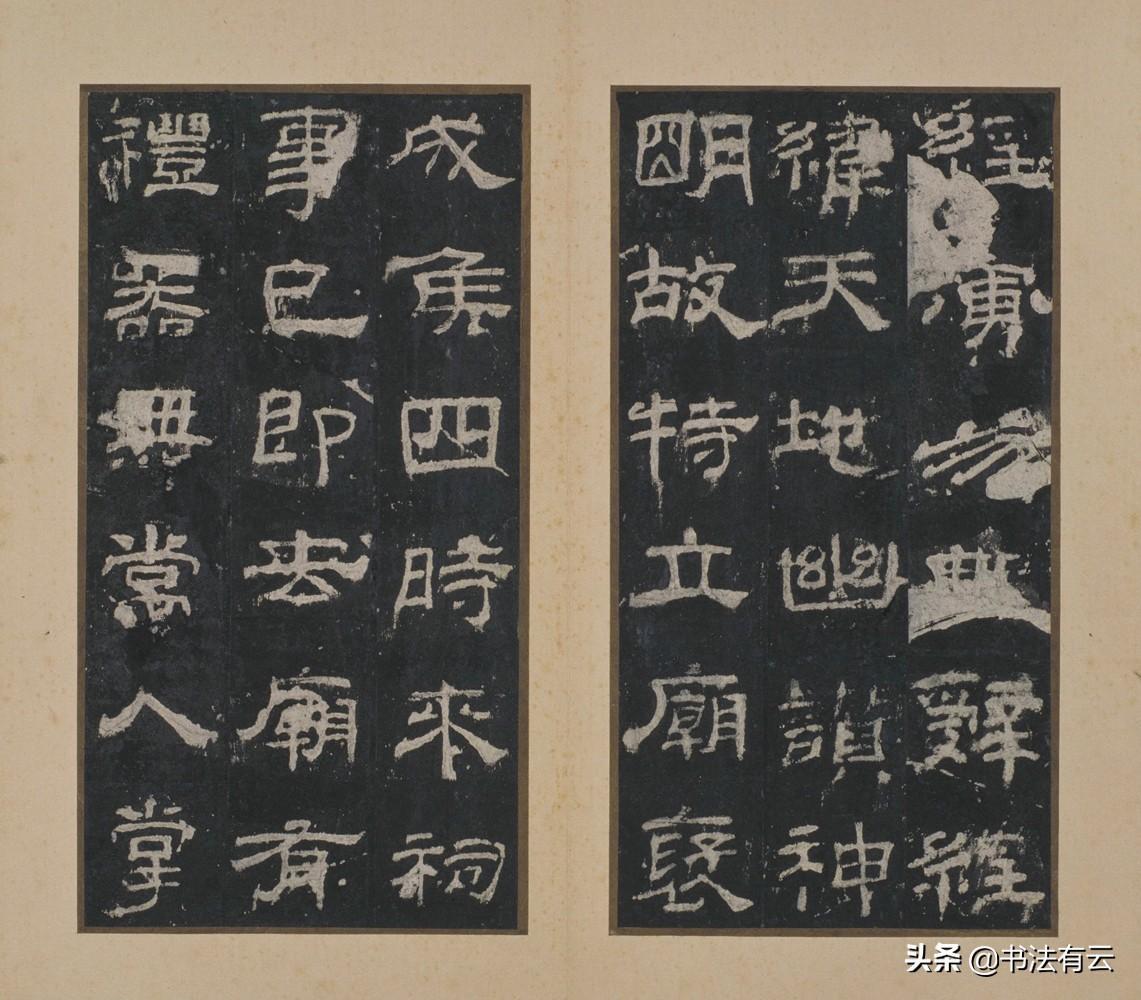 經演易辭經
緯天地幽讚神
明故特立廟褒
成侯四時來祠
事已即去廟有
禮器無常人掌
头条 @书法有云